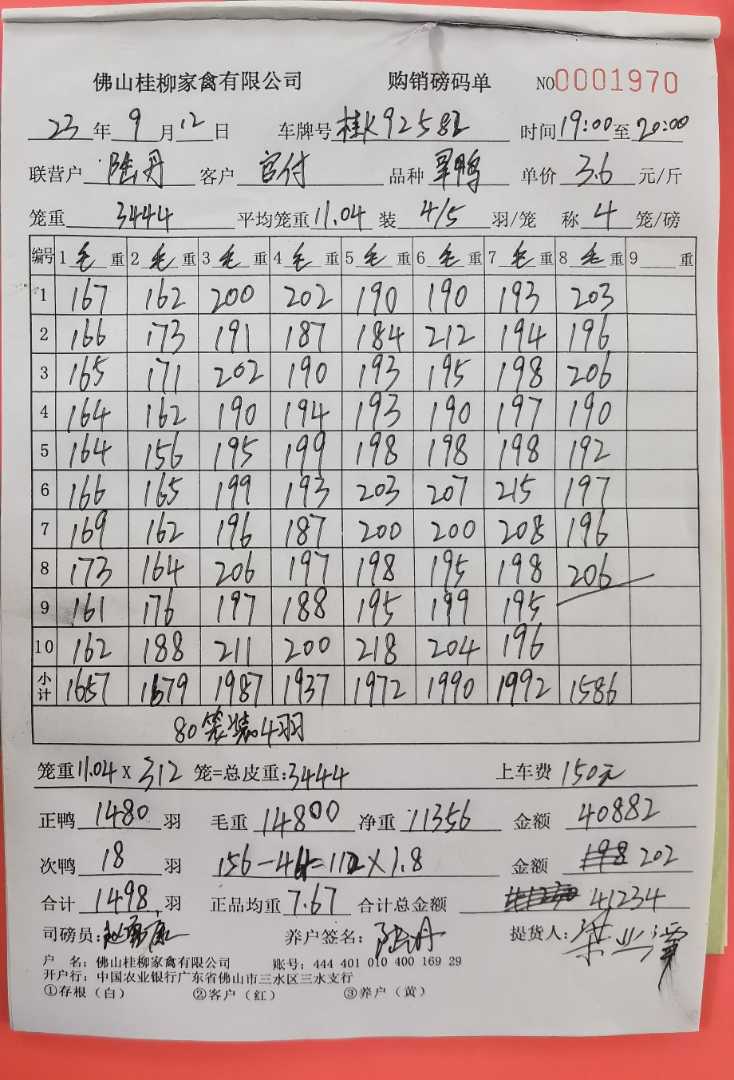 佛山桂柳家禽有限公司 购销磅码单 NO0001970
23年9月12日 车牌号 桂K92582 时间19:00至20:00
联营户 陆丹 客户 官付 品种 单鸭 单价 3.6 元/斤
笼重 3444 平均笼重 11.04 装 4/5 羽/笼 称 4 笼/磅
编号 1毛重 2毛重 3毛重 4毛重 5毛重 6毛重 7毛重 8毛重 9重
1 167 162 200 202 190 190 193 203
2 166 173 191 187 184 212 194 196
3 165 171 202 190 193 195 198 206
4 164 162 190 194 193 190 197 190
5 164 156 195 199 198 198 198 192
6 166 165 199 193 203 207 215 197
7 169 162 196 187 200 200 208 196
8 173 164 206 197 198 195 198 206
9 161 176 197 188 195 199 195
10 162 188 211 200 218 204 196
小计 1657 1679 1987 1937 1972 1990 1992 1586
80笼装4羽
笼重11.04×312笼=总皮重:3444 上车费 150元
正鸭 1480 羽 毛重 14800 净重 11356 金额 40882
次鸭 18 羽 156-44=112×1.8 金额 202
合计 1498 羽 正品均重 7.67 合计总金额 41234
司磅员: 养户签名: 陆丹 提货人:
户 名: 佛山桂柳家禽有限公司 账号: 444 401 010 400 169 29
开户行: 中国农业银行广东省佛山市三水区三水支行
①存根(白) ②客户(红) ③养户(黄)